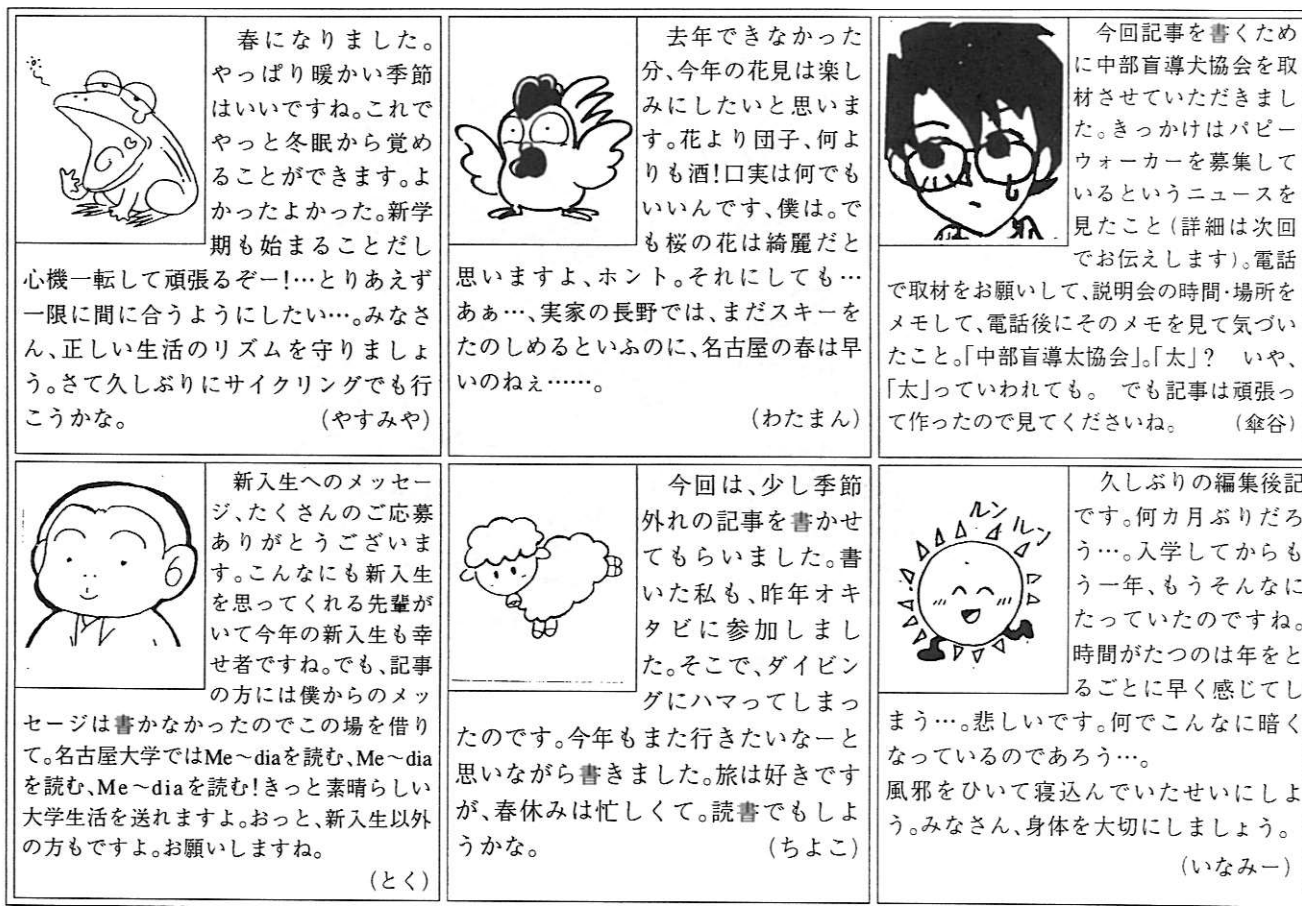 春になりました。
やっぱり暖かい季節
はいいですね。これで
やっと冬眠から覚め
ることができます。よ
かったよかった。新学
期も始まることだし
心機一転して頑張るぞー!…とりあえず
一限に間に合うようにしたい…。みなさ
ん、正しい生活のリズムを守りましょ
う。さて久しぶりにサイクリングでも行
こうかな。 (やすみや)
去年できなかった
分、今年の花見は楽し
みにしたいと思いま
す。花より団子、何よ
りも酒!口実は何でも
いいんです、僕は。で
も桜の花は綺麗だと
思いますよ、ホント。それにしても…
あぁ…、実家の長野では、まだスキーを
たのしめるといふのに、名古屋の春は早
いのねぇ……。
(わたまん)
今回記事を書くため
に中部盲導犬協会を取
材させていただきまし
た。きっかけはパピー
ウォーカーを募集して
いるというニュースを
見たこと(詳細は次回
でお伝えします)。電話
で取材をお願いして、説明会の時間・場所を
メモして、電話後にそのメモを見て気づい
たこと。「中部盲導太協会」。「太」? いや、
「太」っていわれても。 でも記事は頑張っ
て作ったので見てくださいね。 (傘谷)
新入生へのメッセー
ジ、たくさんのご応募
ありがとうございま
す。こんなにも新入生
を思ってくれる先輩が
いて今年の新入生も幸
せ者ですね。でも、記事
の方には僕からのメッ
セージは書かなかったのでこの場を借り
て。名古屋大学ではMe~diaを読む、Me~dia
を読む、Me~diaを読む!きっと素晴らしい
大学生活を送れますよ。おっと、新入生以外
の方もですよ。お願いしますね。
(とく)
今回は、少し季節
外れの記事を書かせ
てもらいました。書
いた私も、昨年オキ
タビに参加しまし
た。そこで、ダイビン
グにハマってしまっ
たのです。今年もまた行きたいなーと
思いながら書きました。旅は好きです
が、春休みは忙しくて。読書でもしよ
うかな。 (ちよこ)
ルンルン
久しぶりの編集後記
です。何カ月ぶりだろ
う…。入学してからも
う一年、もうそんなに
たっていたのですね。
時間がたつのは年をと
るごとに早く感じてし
まう…。悲しいです。何でこんなに暗く
なっているのであろう…。
風邪をひいて寝込んでいたせいにしよ
う。みなさん、身体を大切にしましょう。
(いなみー)